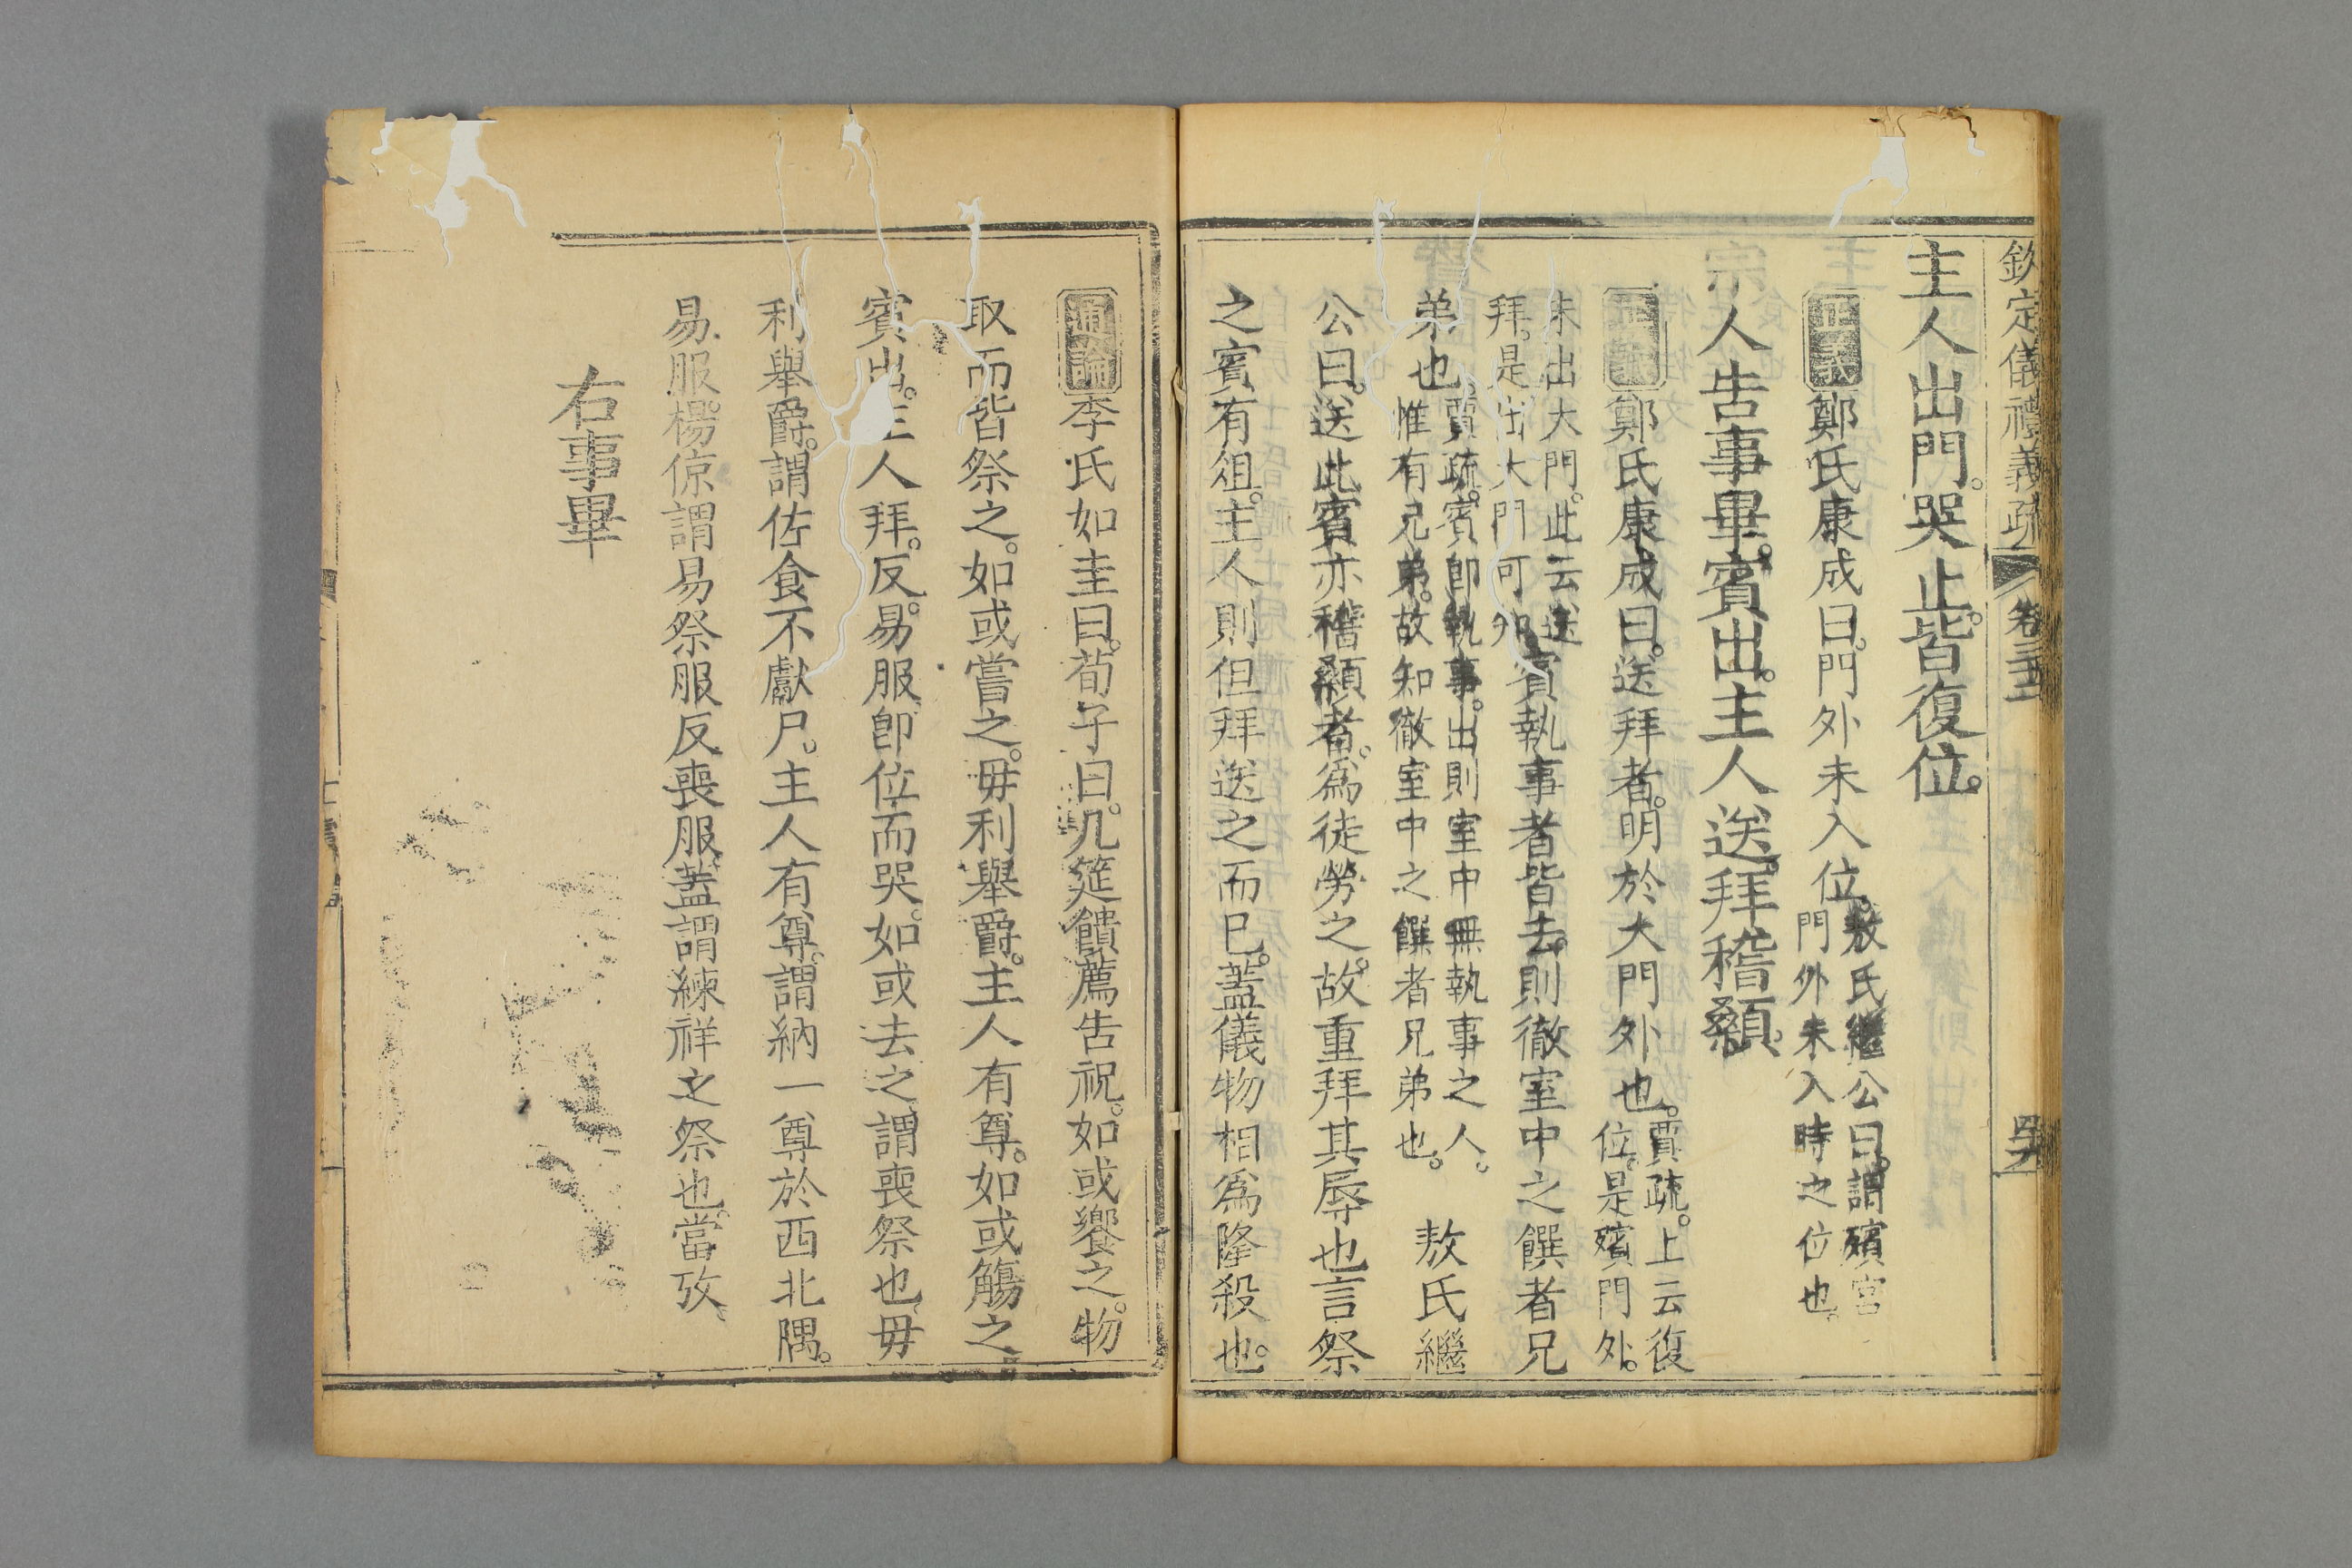 欽定儀禮義疏 卷三十三
主人出門。哭止。皆復位。
正義鄭氏康成曰。門外未入位。敖氏繼公曰。謂殯宮
門外未入時之位也。
宗人告事畢。賓出。主人送。拜稽顙。
正義鄭氏康成曰。送拜者。明於大門外也。賈疏。上云復
位。是殯門外。
未出大門。此云送
拜。是出大門可知。
賓執事者皆去。則徹室中之饌者兄
弟也。賈疏。賓卽執事。出則室中無執事之人。
惟有兄弟。故知徹室中之饌者兄弟也。
敖氏繼
公曰。送此賓亦稽顙者。爲徒勞之。故重拜其辱也。言祭
之賓有俎。主人則但拜送之而已。蓋儀物相爲隆殺也。
通論李氏如圭曰。荀子曰。几筵饋薦告祝。如或饗之。物
取而皆祭之。如或嘗之。毋利舉爵。主人有尊。如或觴之。
賓出。主人拜。反。易服。卽位而哭。如或去之。謂喪祭也。毋
利舉爵。謂佐食不獻尸。主人有尊。謂納一尊於西北隅。
易服。楊倞謂易祭服反喪服。蓋謂練祥之祭也。當攷。
右事畢